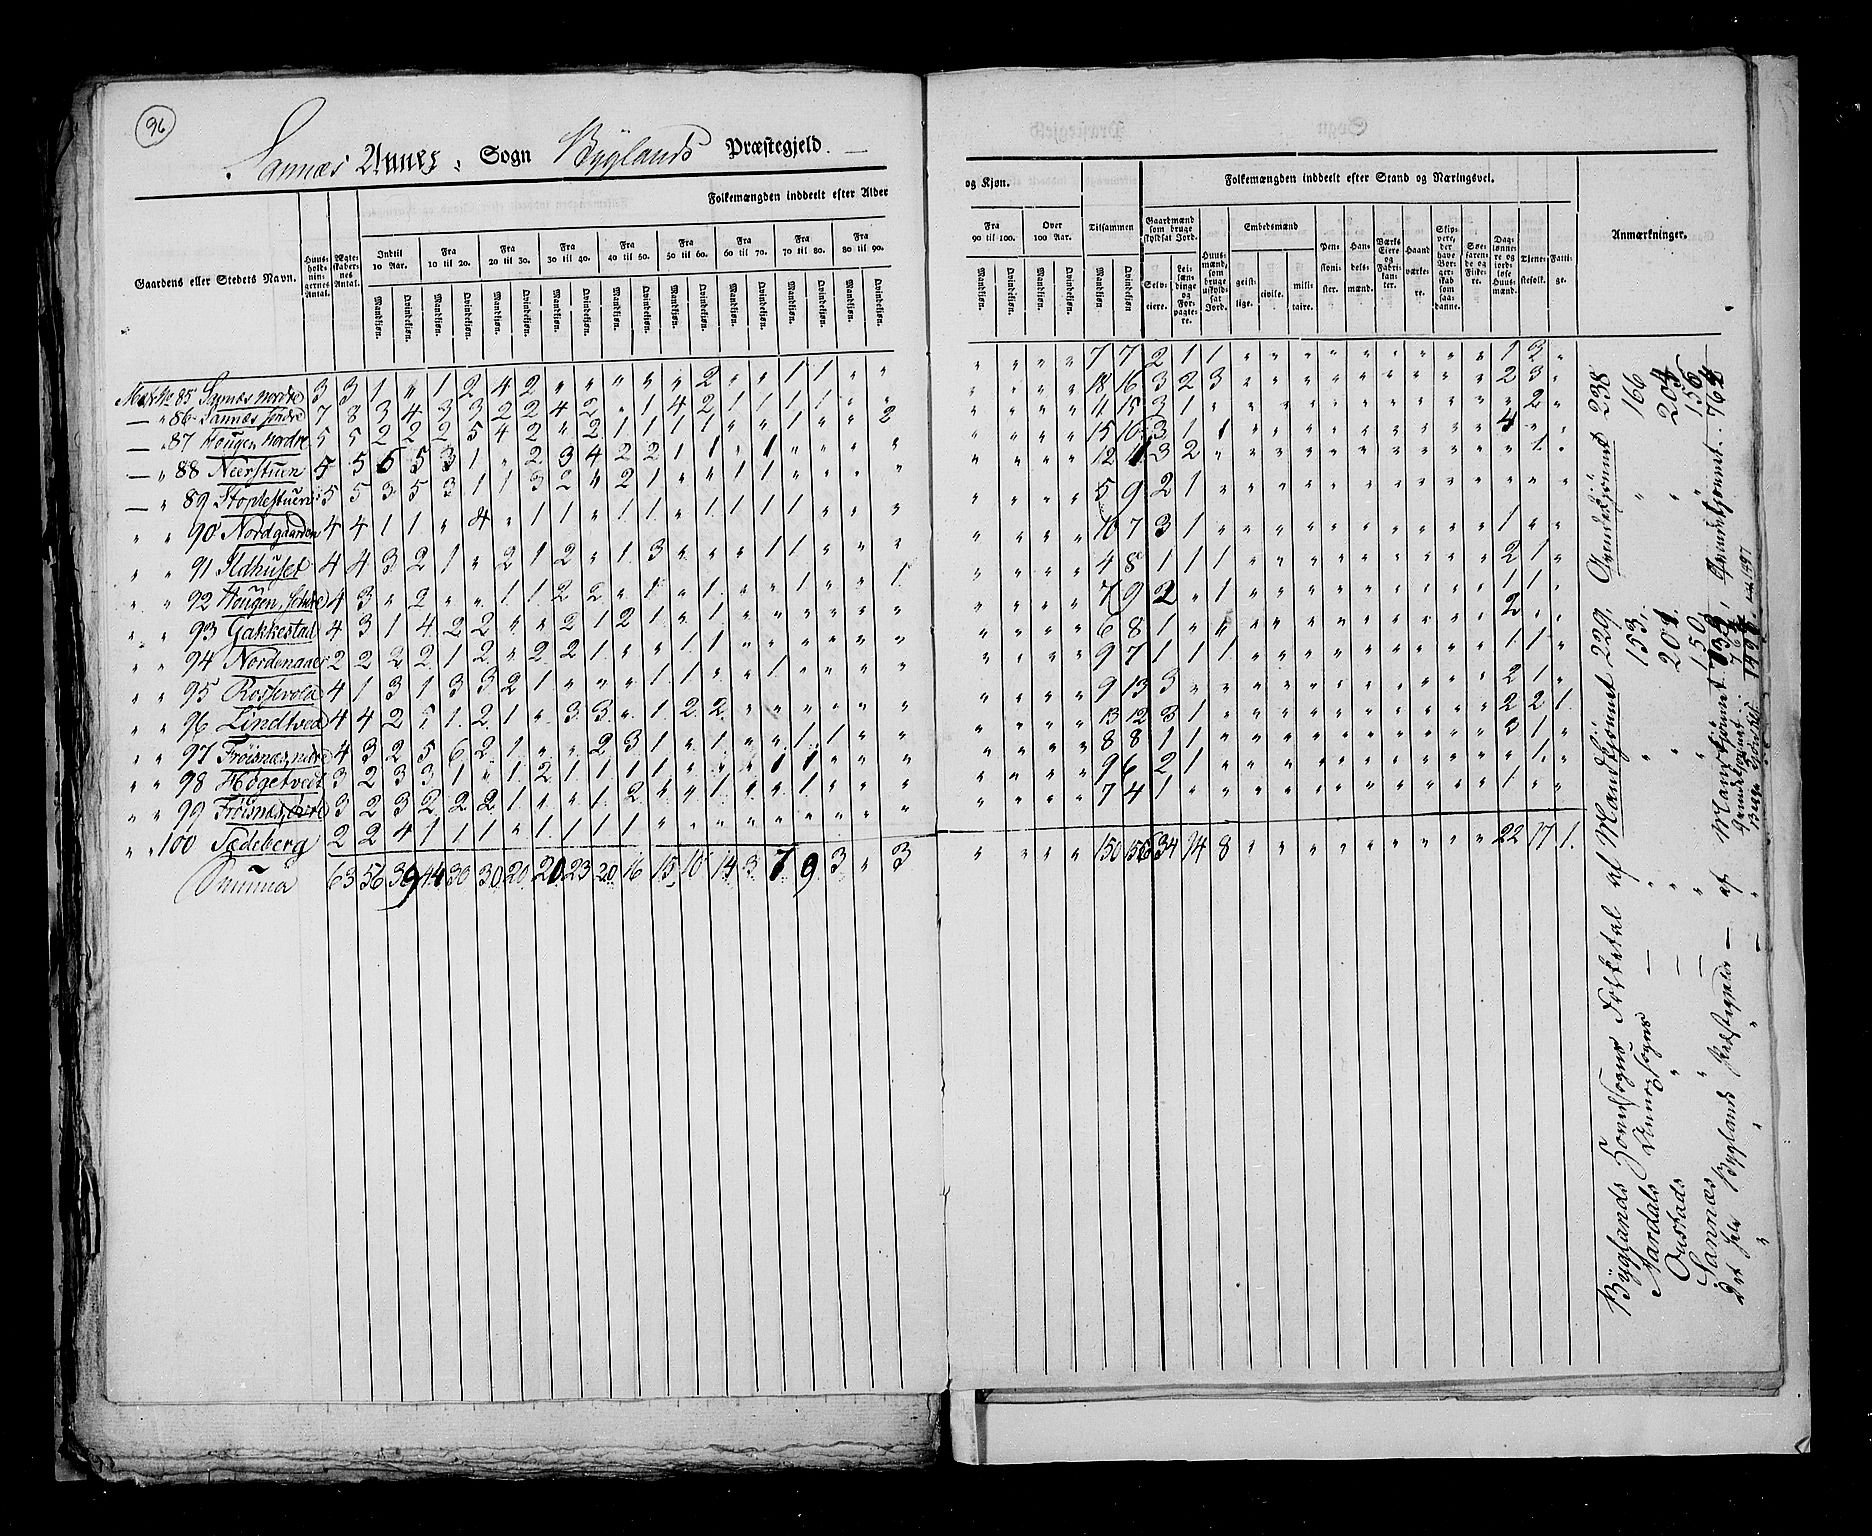 96
Sannæs Annex Sogn Byglands Præstegjeld.
Gaardens eller Stedets Navn.
Huusholdningernes Antal.
Ægteskabernes Antal.
Folkemængden inddeelt efter Alder
og Kjøn.
Indtil 10 Aar.
Fra 10 til 20.
Fra 20 til 30.
Fra 30 til 40.
Fra 40 til 50.
Fra 50 til 60.
Fra 60 til 70.
Fra 70 til 80.
Fra 80 til 90.
Fra 90 til 100.
Over 100 Aar.
Tilsammen
Mandkjøn. Qvindekjøn.
Folkemængden inddeelt efter Stand og Næringsvei.
Gaardmænd som bruge skyldsat Jord.
Selveiere.
Leilændinge og Forpagtere.
Huusmænd, som bruge uskyldsat Jord.
Embedsmænd
geistlige.
civile.
militaire.
Pensionister.
Handelsmænd.
Værks Eiere og Fabrikanter.
Haandværkere.
Skippere, der have Borgerskab som saadanne.
Søefarende og Fiskere.
Daglønnere og jordløse Huusmænd.
Tjenestefolk.
Fattige.
Anmærkninger.
85 Sannæs nordre 3 3 1 " 1 2 4 2 " " " " " 2 " " 1 1 " "
86 Sannæs søndre 7 8 3 4 3 3 2 2 4 2 " 1 4 2 1 1 1 1 " "
87 Hougen Nordre 5 5 2 2 2 5 4 2 " 2 1 1 1 1 " " 1 " " 2
88 Neerstuen 5 5 6 5 3 1 " 2 3 4 2 2 1 1 " 1
89 Stoplestuen 5 5 3 5 3 1 1 3 2 " 2 1
90 Nordgaarden 4 4 1 1 " 4 " 1 1 " 1 1 " 1 1 1 1
91 Ildhuset 4 4 3 2 1 " 2 1 2 " 1 3 " " " 1 1
92 Hougen, Søndre 4 3 " 2 " " 1 1 2 2 " 1 " 1 " " 1 " " 1
93 Gakkestad 4 3 1 4 2 2 " " 2 1 2 1 1
94 Nordenaae 2 2 2 2 1 2 " 2 2 1 " " 1 1
95 Rossevold 4 1 3 1 3 3 2 1 " " " 1 1 " 1
96 Lindtved 4 4 2 5 1 2 1 " 3 3 " 1 2 2
97 Frøisnæs, nedre 4 3 2 5 6 2 1 " " 2 3 1 " 1 " " 1 1
98 Høgetvedt 3 2 3 3 1 " 1 2 1 1 1 1 " " " 1 1
99 Frøisnæs, øvre 3 2 3 2 2 2 1 " " 1 2 " 1 " 1 " 1
100 Fædeberg 2 2 4 1 1 1 " 1 1 1 1
Summa 63 56 39 44 30 30 20 20 23 20 16 15 10 14 3 7 9 3 " 3
7 7 2 1 1 1 2
18 16 3 2 3 2 3
11 15 3 1 " 2
15 10 3 1 1 4
3 2 1
5 9 2 1
10 7 3 1 1
4 8 1 1 1 2 1
7 9 2 " 1 1 1
6 8 1 " " 2
9 7 1 1 1 1 1
9 13 3 2 1
13 12 3 1 2 2 1
8 8 1 1 3 1
9 6 2 1 " 1
7 4 1 1
150 156 34 14 8 22 17 1
Byglands Hovedsogns Folketal af Mandkjønnet 229, Qvindekjønnet 238
Aardals Annexsogns — " 153, " 166
Oustads " — " 201, " 204
Sannæs " — " 150, " 156
Det hele Byglands Præstegjeld — af Mandkjønnet 733, Qvindekjønnet 764